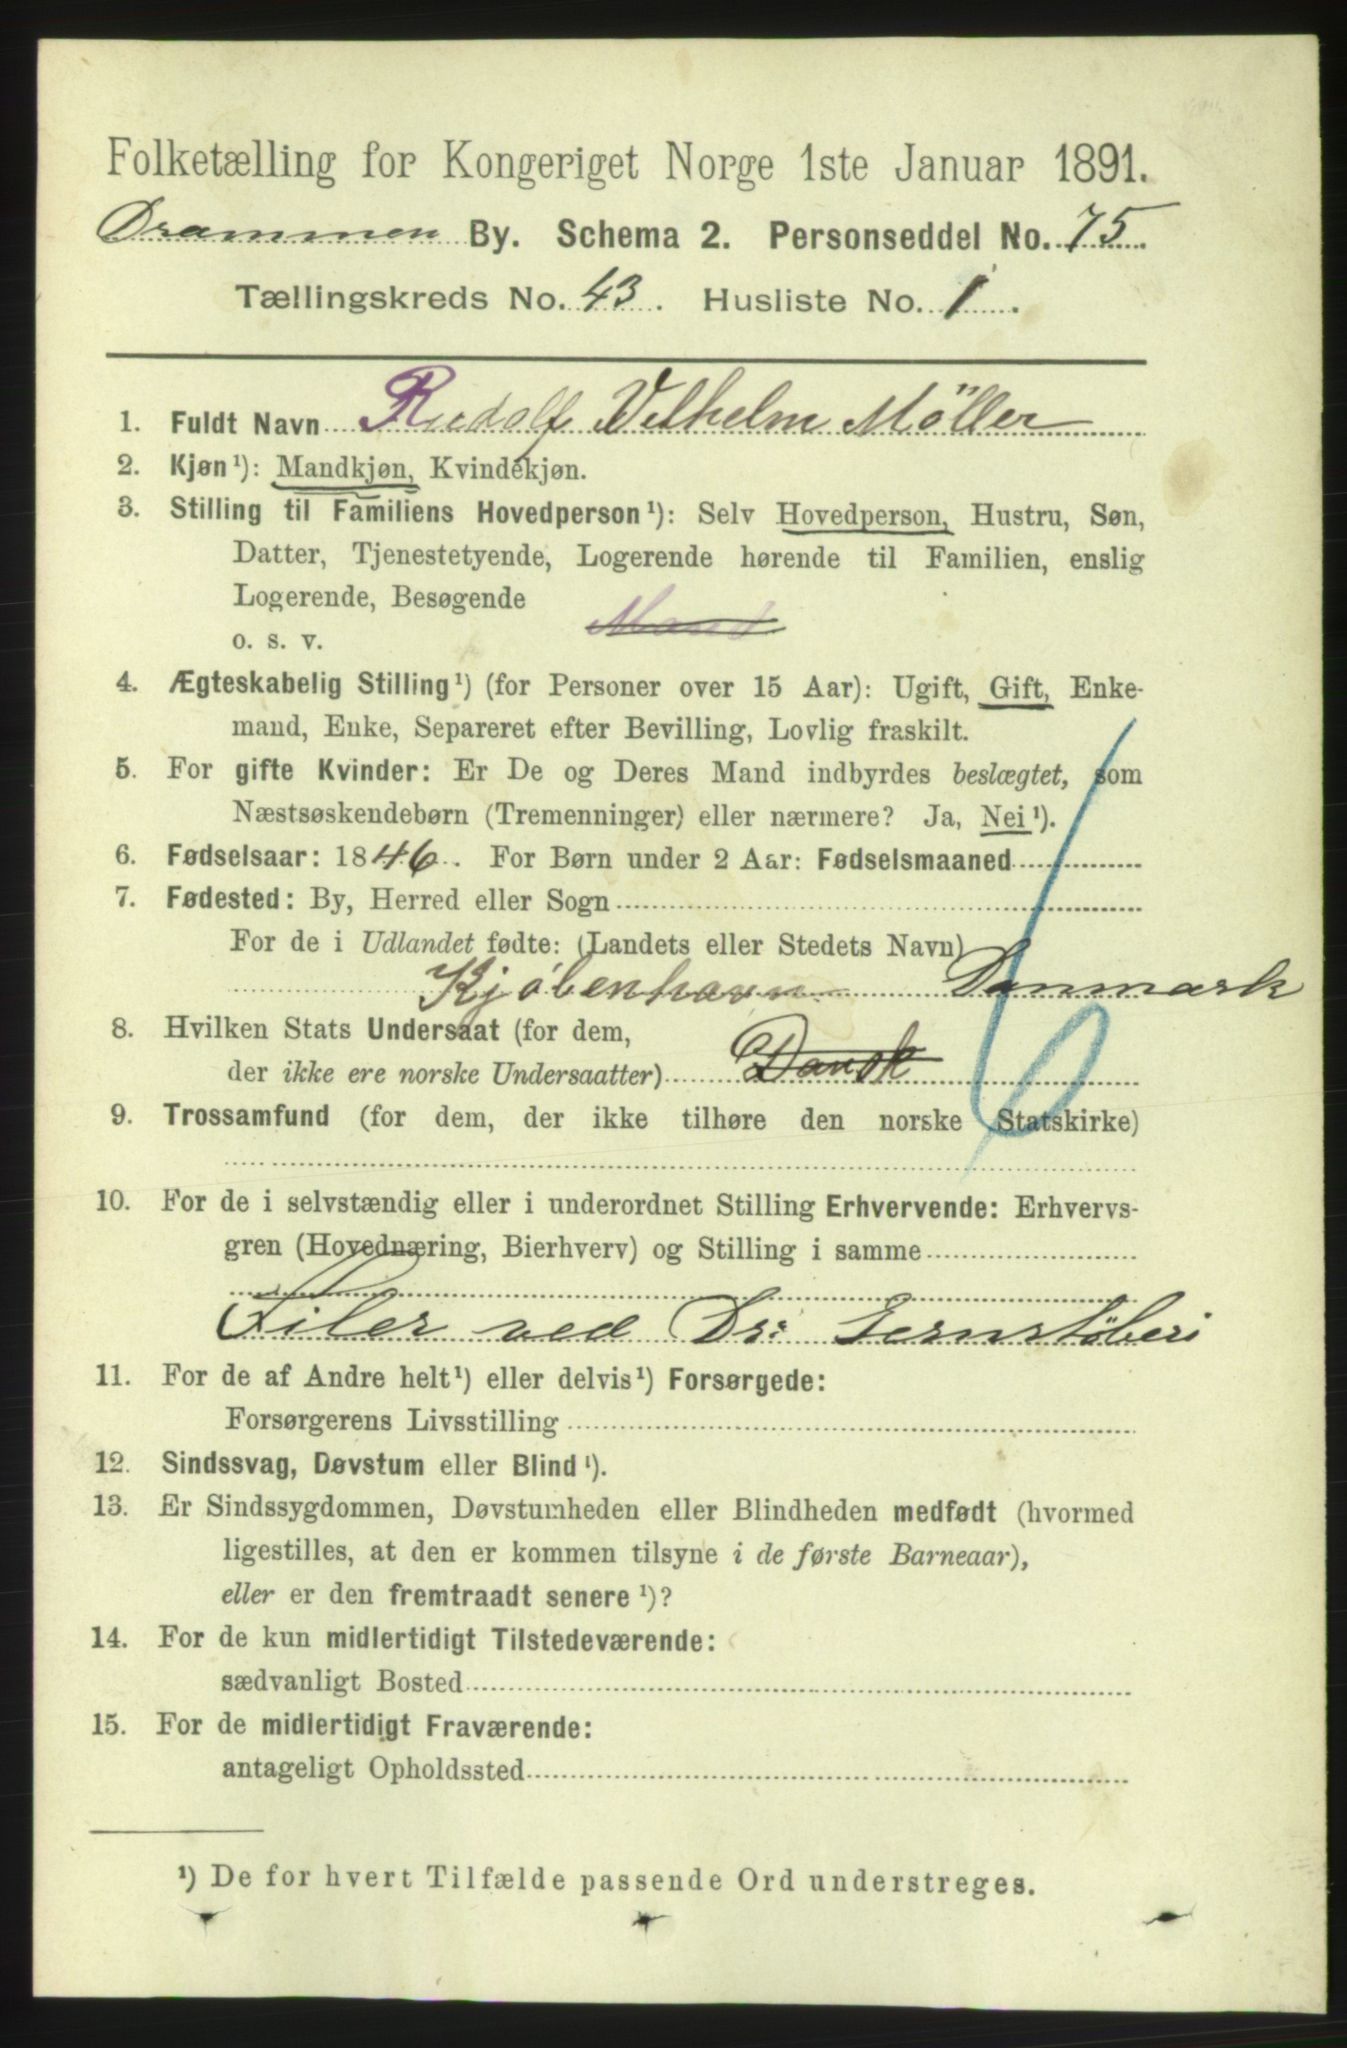 Folketælling for Kongeriget Norge 1ste Januar 1891.
Drammen By. Schema 2. Personseddel No. 75.
Tællingskreds No. 43. Husliste No. 1.
1. Fuldt Navn Rudolf Vilhelm Möller
2. Kjøn¹): Mandkjøn, Kvindekjøn.
3. Stilling til Familiens Hovedperson¹): Selv Hovedperson, Hustru, Søn,
Datter, Tjenestetyende, Logerende hørende til Familien, enslig
Logerende, Besøgende
o. s. v. Mand
4. Ægteskabelig Stilling¹) (for Personer over 15 Aar): Ugift, Gift, Enke-
mand, Enke, Separeret efter Bevilling, Lovlig fraskilt.
5. For gifte Kvinder: Er De og Deres Mand indbyrdes beslægtet, som
Næstsøskendebørn (Tremenninger) eller nærmere? Ja, Nei¹).
6. Fødselsaar: 1846. For Børn under 2 Aar: Fødselsmaaned
7. Fødested: By, Herred eller Sogn
For de i Udlandet fødte: (Landets eller Stedets Navn)
Kjøbenhavn Danmark
8. Hvilken Stats Undersaat (for dem,
der ikke ere norske Undersaatter) Dansk
9. Trossamfund (for dem, der ikke tilhøre den norske Statskirke)
10. For de i selvstændig eller i underordnet Stilling Erhvervende: Erhvervs-
gren (Hovednæring, Bierhverv) og Stilling i samme
Filer ved Dr: Jernstøberi
11. For de af Andre helt¹) eller delvis¹) Forsørgede:
Forsørgerens Livsstilling
12. Sindssvag, Døvstum eller Blind¹).
13. Er Sindssygdommen, Døvstumheden eller Blindheden medfødt (hvormed
ligestilles, at den er kommen tilsyne i de første Barneaar),
eller er den fremtraadt senere¹)?
14. For de kun midlertidigt Tilstedeværende:
sædvanligt Bosted
15. For de midlertidigt Fraværende:
antageligt Opholdssted
¹) De for hvert Tilfælde passende Ord understreges.